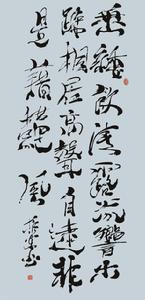 垂緌飲清露流響出
疏桐居高聲自遠非
是藉秋風